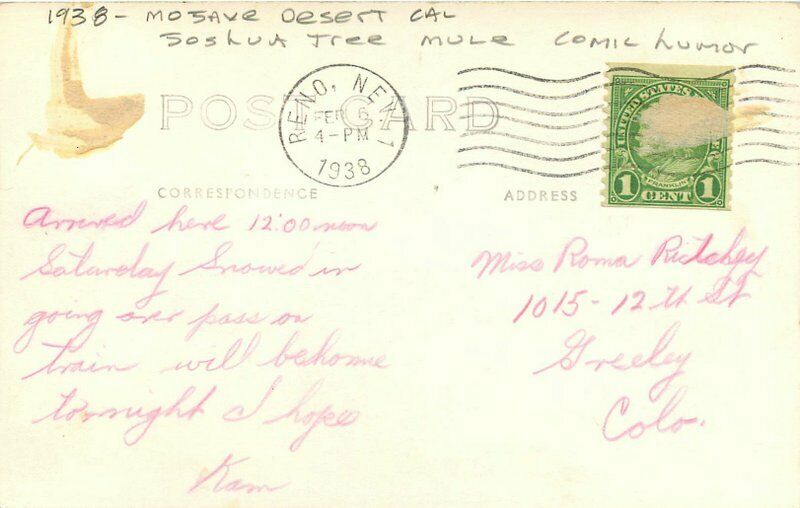 1938 - MOJAVE DESERT CAL
JOSHUA TREE MULE COMIC HUMOR
POST CARD
RENO, NEV. 1
FEB 6
4-PM
1938
UNITED STATES
FRANKLIN
1 CENT 1
CORRESPONDENCE
ADDRESS
Arrived here 12:00 noon
Saturday Snowed in
going over pass on
train will be home
tonight I hope
Miss Roma Ritchey
1015-12th St
Greeley
Colo.